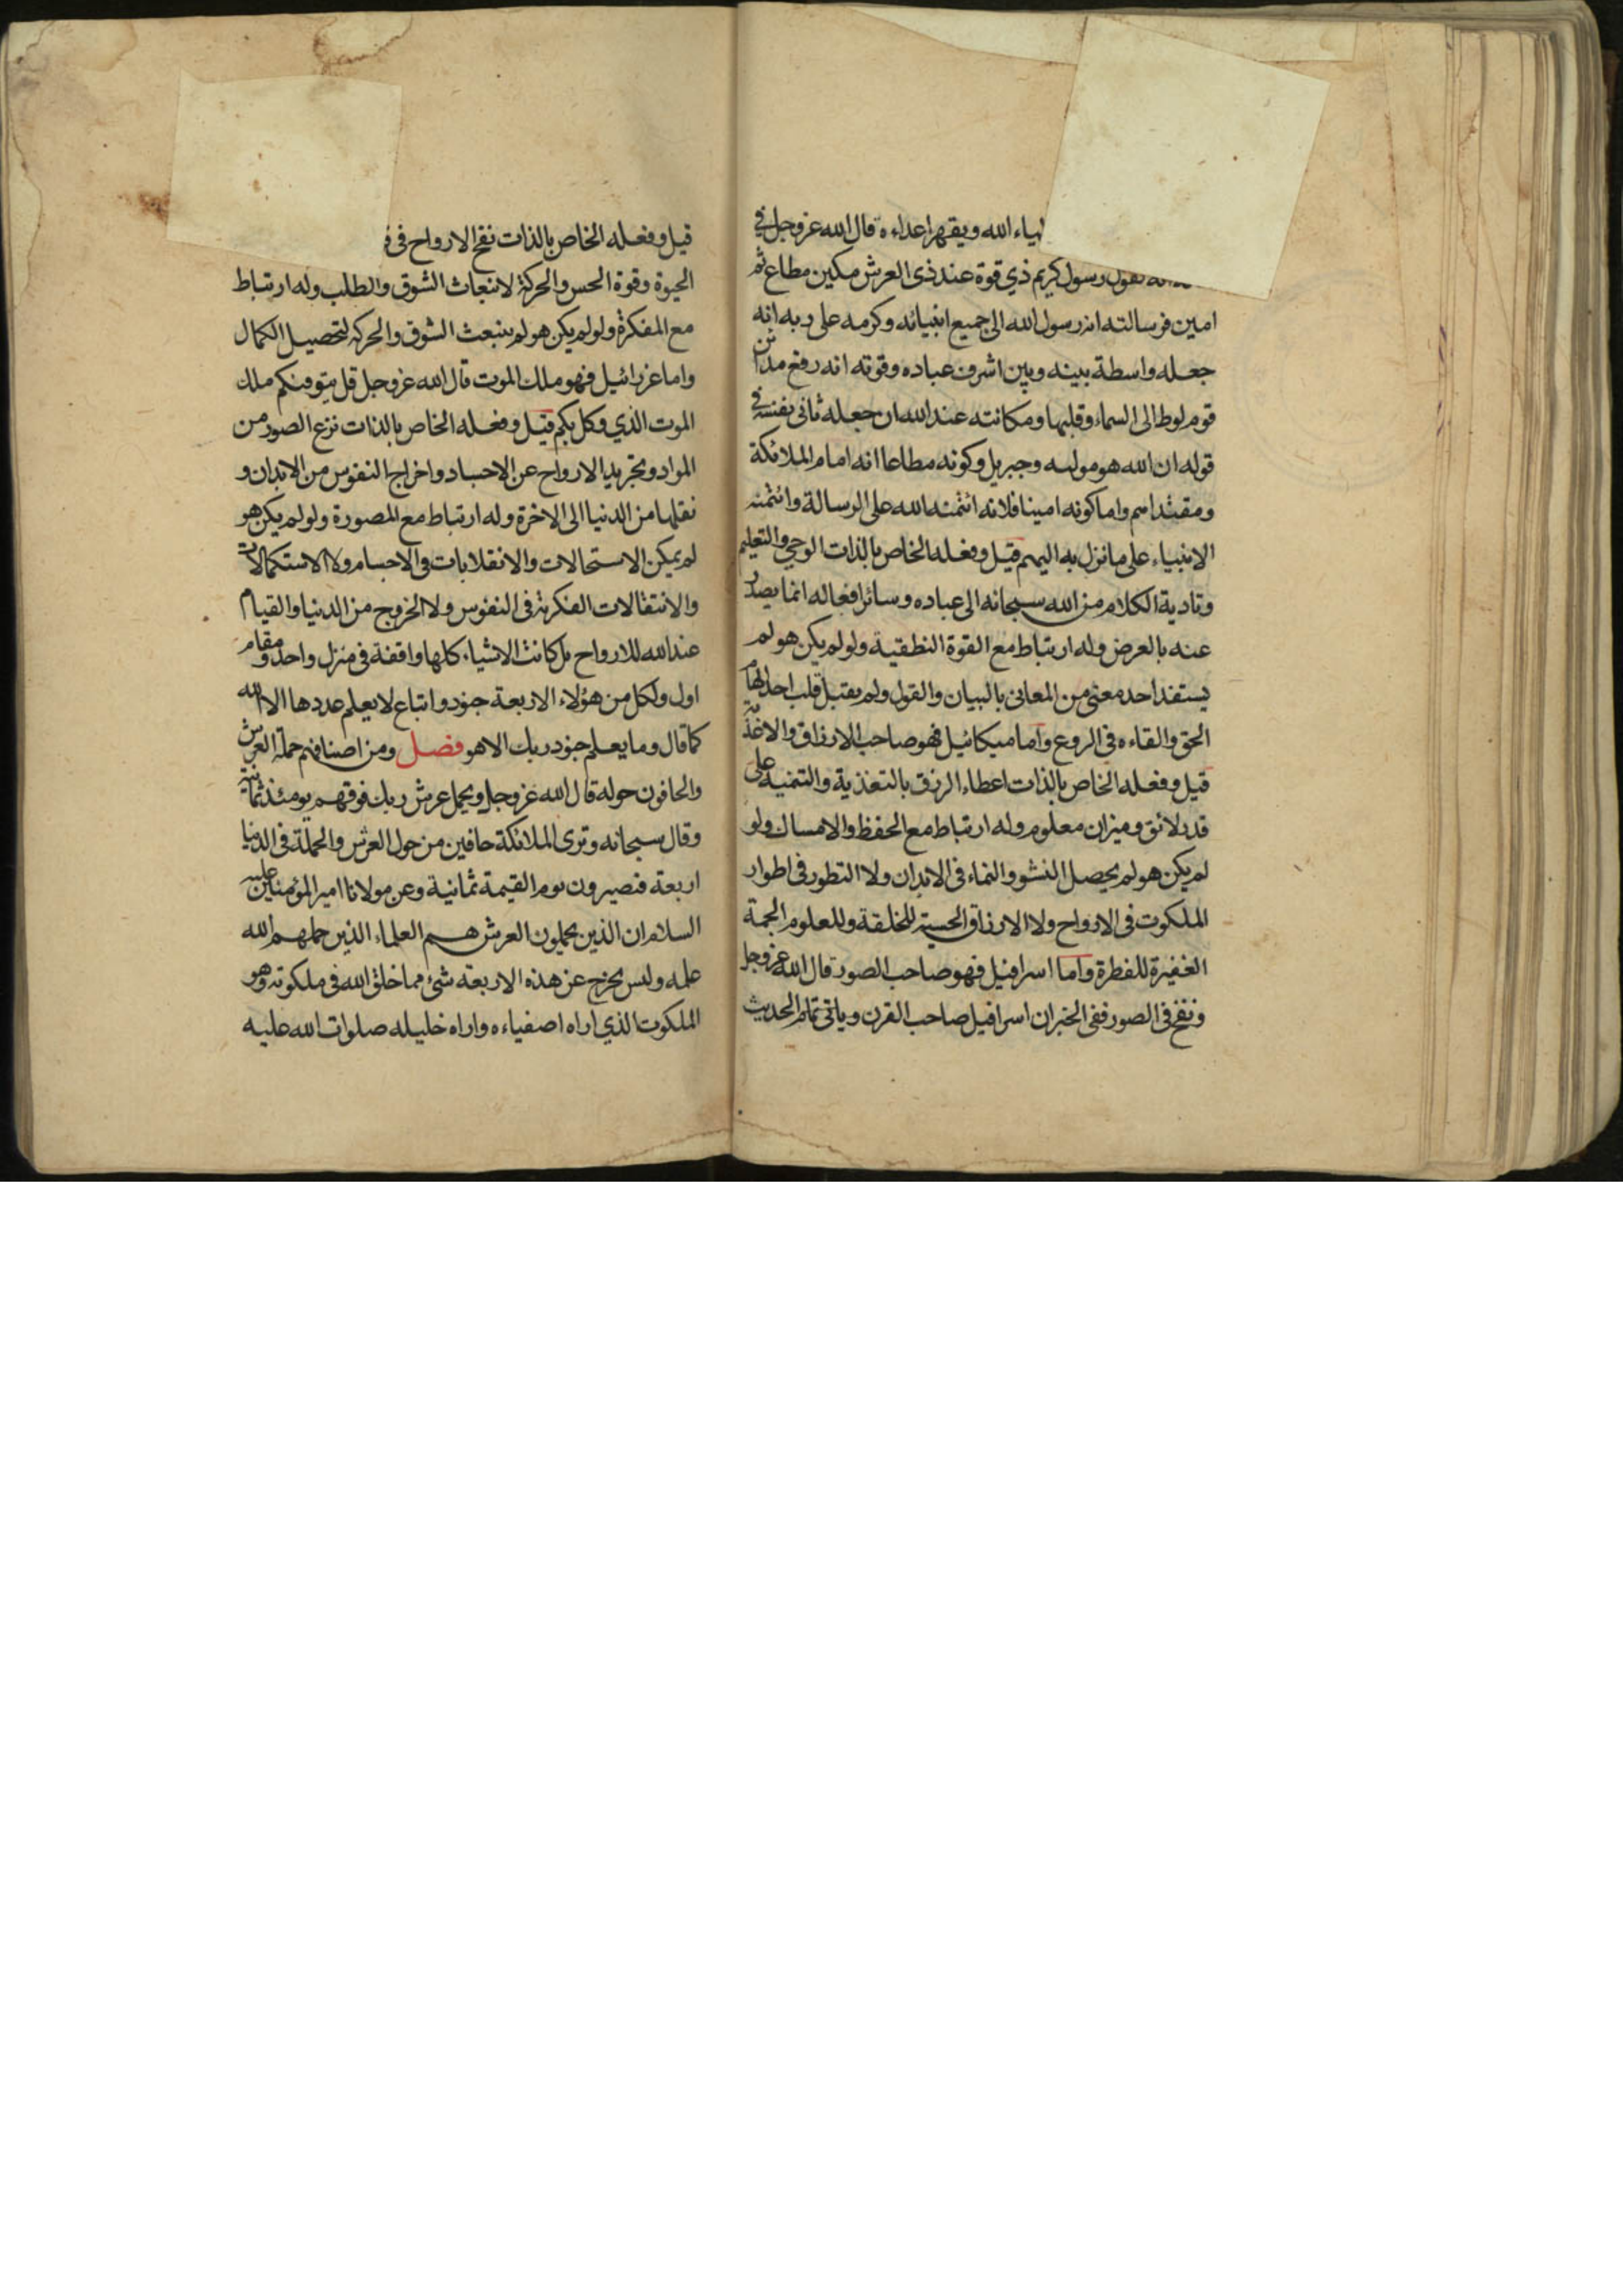 الله ويقهر اعداءه قال الله عزوجل في
لقول رسول كريم ذي قوة عند ذى العرش مكين مطاع ثم
امين فرسالته انه رسول الله الى جميع انبيائه وكرمه على ربه انه
جعله واسطة بينه وبين اشرف عباده وقوته انه رفع مداين
قوم لوط الى السماء وقلبها ومكانته عند الله ان جعله ثانى نفسه في
قوله ان الله هو موليه وجبريل وكونه مطاعا انه امام الملائكة
ومقتداهم واما كونه امينا فلانه ائتمنه الله على الرسالة وائتمنه
الانبياء على ما نزل به اليهم قيل وفعله الخاص بالذات الوحي والتعليم
وتادية الكلام من الله سبحانه الى عباده وسائر افعاله انما يصدر
عنه بالعرض وله ارتباط مع القوة النطقية ولو لم يكن هو لم
يستفد احد معنى من المعانى بالبيان والقول ولم يقبل قلب احد الهام
الحق والقاءه فى الروع واما ميكائيل فهو صاحب الارزاق والاغذية
قيل وفعله الخاص بالذات اعطاء الرزق بالتغذية والتنمية على
قدر لائق وميزان معلوم وله ارتباط مع الحفظ والامساك ولو
لم يكن هو لم يحصل النشو والنماء فى الابدان ولا التطور فى اطوار
الملكوت فى الارواح ولا الارزاق الحسية للخلقة وللعلوم الجمة
الغفيرة للفطرة واما اسرافيل فهو صاحب الصور قال الله عزوجل
ونفخ فى الصور ففى الخبر ان اسرافيل صاحب القرن وياتى تمام الحديث
قيل وفعله الخاص بالذات نفخ الارواح فى
الحيوة وقوة الحس والحركة لانبعاث الشوق والطلب وله ارتباط
مع المفكرة ولو لم يكن هو لم ينبعث الشوق والحركة لتحصيل الكمال
واما عزرائيل فهو ملك الموت قال الله عزوجل قل يتوفيكم ملك
الموت الذي وكل بكم قيل وفعله الخاص بالذات نزع الصور من
المواد وتجريد الارواح عن الاجساد واخراج النفوس من الابدان و
نقلها من الدنيا الى الاخرة وله ارتباط مع المصورة ولو لم يكن هو
لم يمكن الاستحالات والانقلابات فى الاجسام ولا الاستكمالات
والانتقالات الفكرية فى النفوس ولا الخروج من الدنيا والقيام
عند الله للارواح بل كانت الاشياء كلها واقفة فى منزل واحد ومقام
اول ولكل من هؤلاء الاربعة جنود واتباع لا يعلم عددها الا الله
كما قال وما يعلم جنود ربك الا هو فصل ومن اصنافهم حملة العرش
والحافون حوله قال الله عزوجل ويحمل عرش ربك فوقهم يومئذ ثمانية
وقال سبحانه وترى الملائكة حافين من حول العرش والحملة فى الدنيا
اربعة فتصيرون يوم القيمة ثمانية وعن مولانا امير المؤمنين عليه
السلام ان الذين يحملون العرش هم العلماء الذين حملهم الله
علمه وليس يخرج عن هذه الاربعة شئ مما خلق الله فى ملكوته وهو
الملكوت الذي اراه اصفياءه واراه خليله صلوات الله عليه